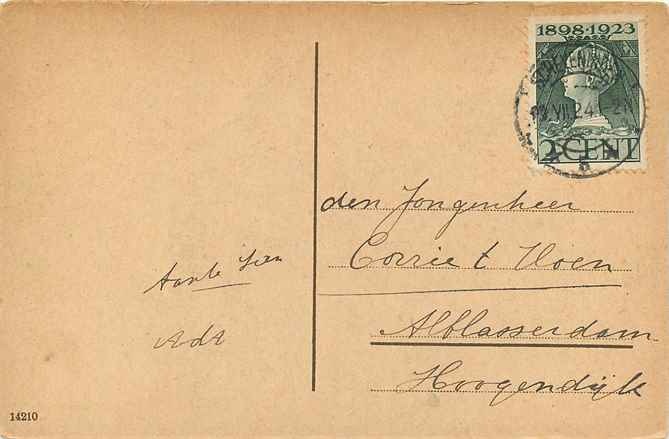 1898·1923
2 CENT
den Jongenheer
Corrie t Hoen
Alblasserdam
Hoogendijk
tante
AdA
14210